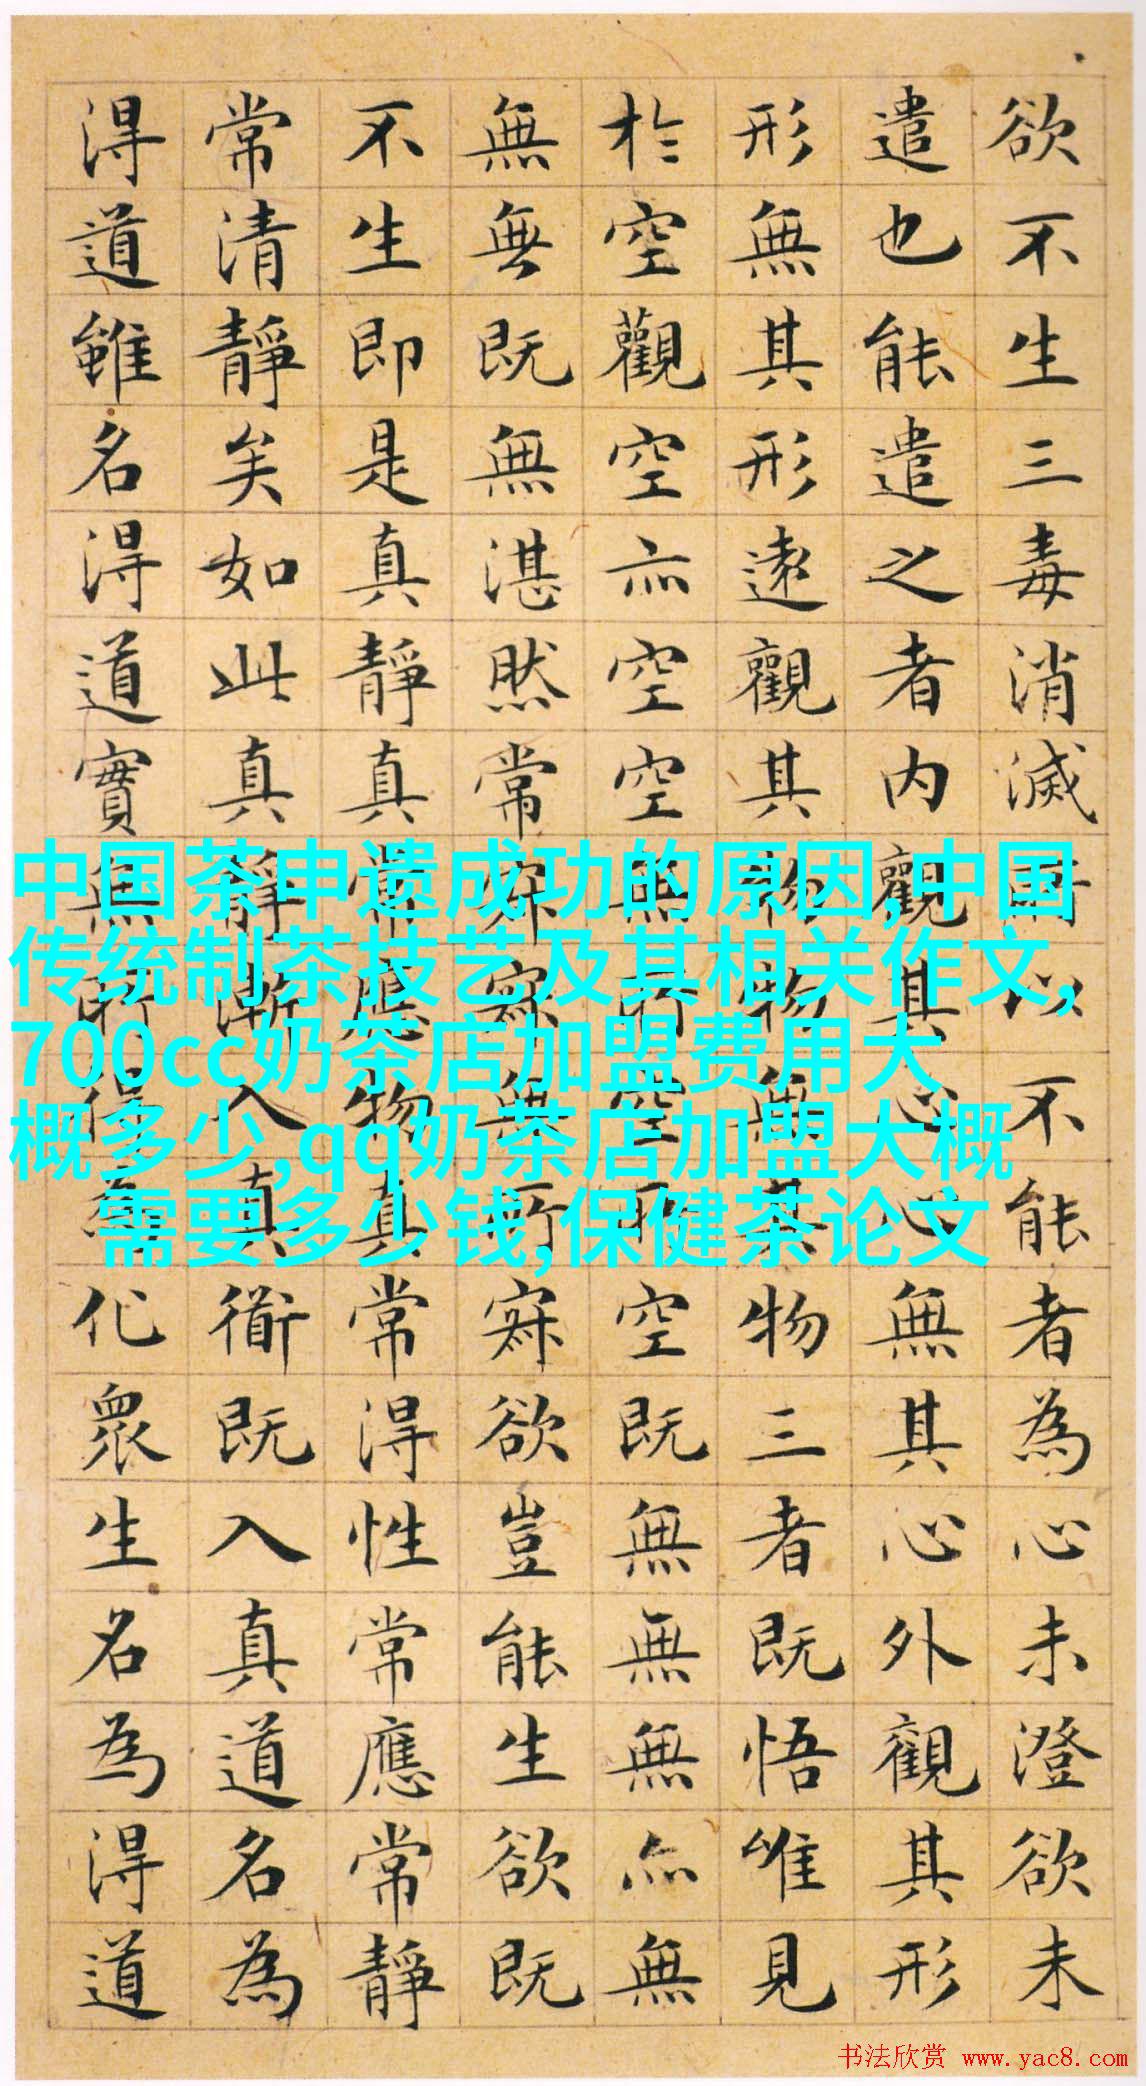 欲不生三毒消滅所以不能者為心未澄欲未
遣也能遣之者内觀其心心無其心外觀其形
形無其形遠觀其物物無其物三者既悟唯見
於空觀空亦空空無所空所空既無無無亦無
無無既無湛然常寂寂無所寂欲豈能生欲既
不生即是真靜真常應物真常得性常應常靜
常清靜矣如此真靜漸入真道既入真道名為
得道雖名得道實無所得為化眾生名為得道
中国茶申遗成功的原因,中国
传统制茶技艺及其相关作文,
700cc奶茶店加盟费用大
概多少,qq奶茶店加盟大概
需要多少钱,保健茶论文
书法欣赏 www.yac8.com